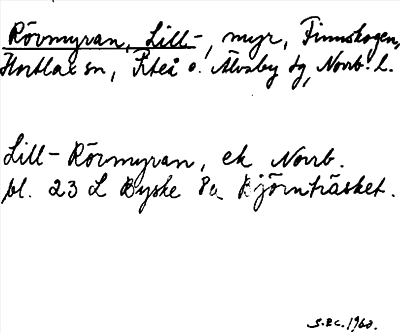 Rövmyran, Lill-, myr, Finnskogen,
Hortlax sn, Piteå o. Älvsby tg, Norrb. l.
Lill-Rövmyran, ek Norrb.
bl. 23 L Byske 8a Björnträsket.
1960.